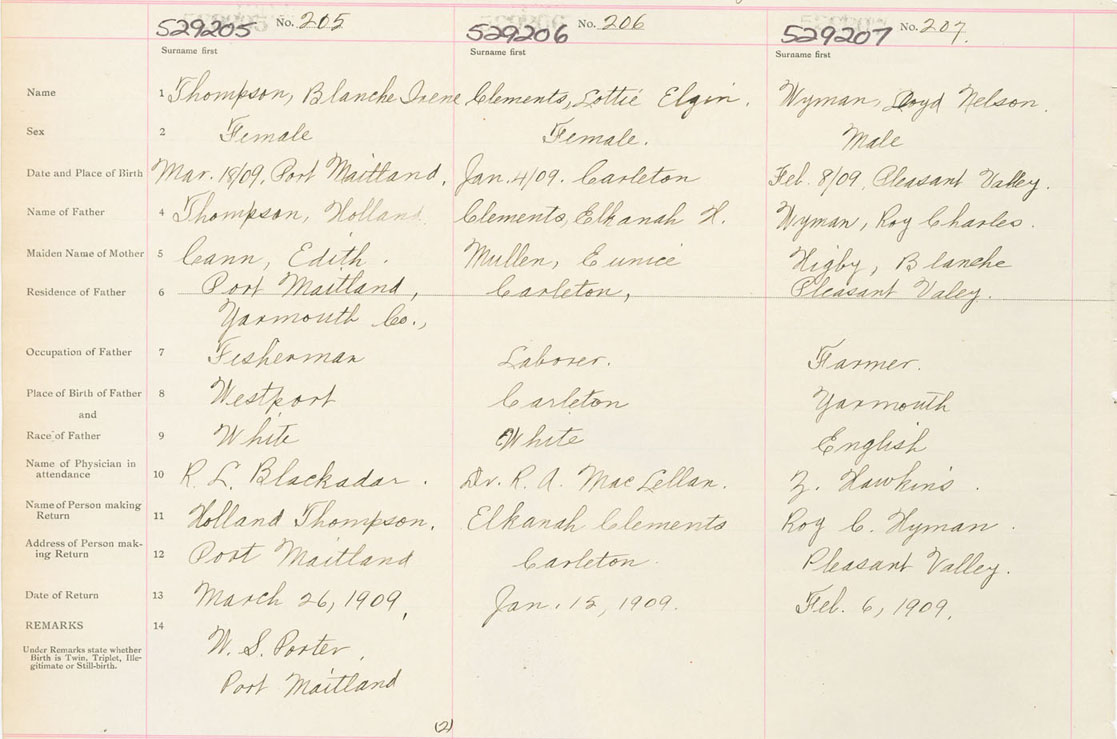 529205 No. 205 529206 No. 206 529207 No. 207.
Surname first Surname first Surname first
Name 1 Thompson, Blanche Irene Clements, Lottie Elgin. Wyman, Loyd Nelson.
Sex 2 Female Female. Male
Date and Place of Birth 3 Mar. 18/09, Port Maitland. Jan. 4/09. Carleton Feb. 8/09, Pleasant Valley.
Name of Father 4 Thompson, Holland. Clements, Elkanah H. Wyman, Roy Charles.
Maiden Name of Mother 5 Cann, Edith. Mullen, Eunice Higby, Blanche
Residence of Father 6 Port Maitland, Carleton, Pleasant Valey.
Yarmouth Co.,
Occupation of Father 7 Fisherman Laborer. Farmer.
Place of Birth of Father 8 Westport Carleton Yarmouth
and
Race of Father 9 White White English
Name of Physician in
attendance 10 R. L. Blackadar. Dr. R. A. MacLellan. Z. Hawkins.
Name of Person making
Return 11 Holland Thompson. Elkanah Clements Roy C. Hyman.
Address of Person mak-
ing Return 12 Port Maitland Carleton. Pleasant Valley.
Date of Return 13 March 26, 1909, Jan. 15, 1909. Feb. 6, 1909.
REMARKS 14
Under Remarks state whether
Birth is Twin, Triplet, Ille-
gitimate or Still-birth.
W. S. Porter,
Port Maitland
(2)